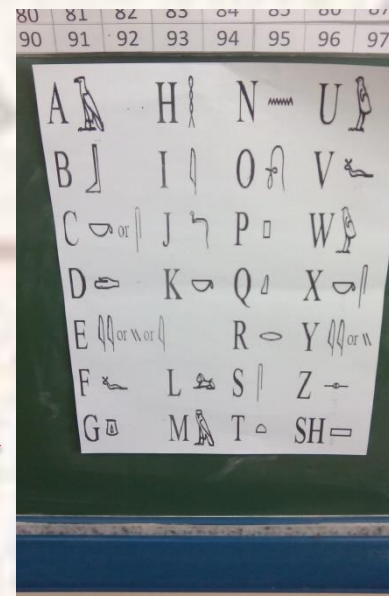 80 81 82 83 84 85 86 87
90 91 92 93 94 95 96 97
A H N U
B I O V
C or J P W
D K Q X
E or or R Y or
F L S Z
G M T SH